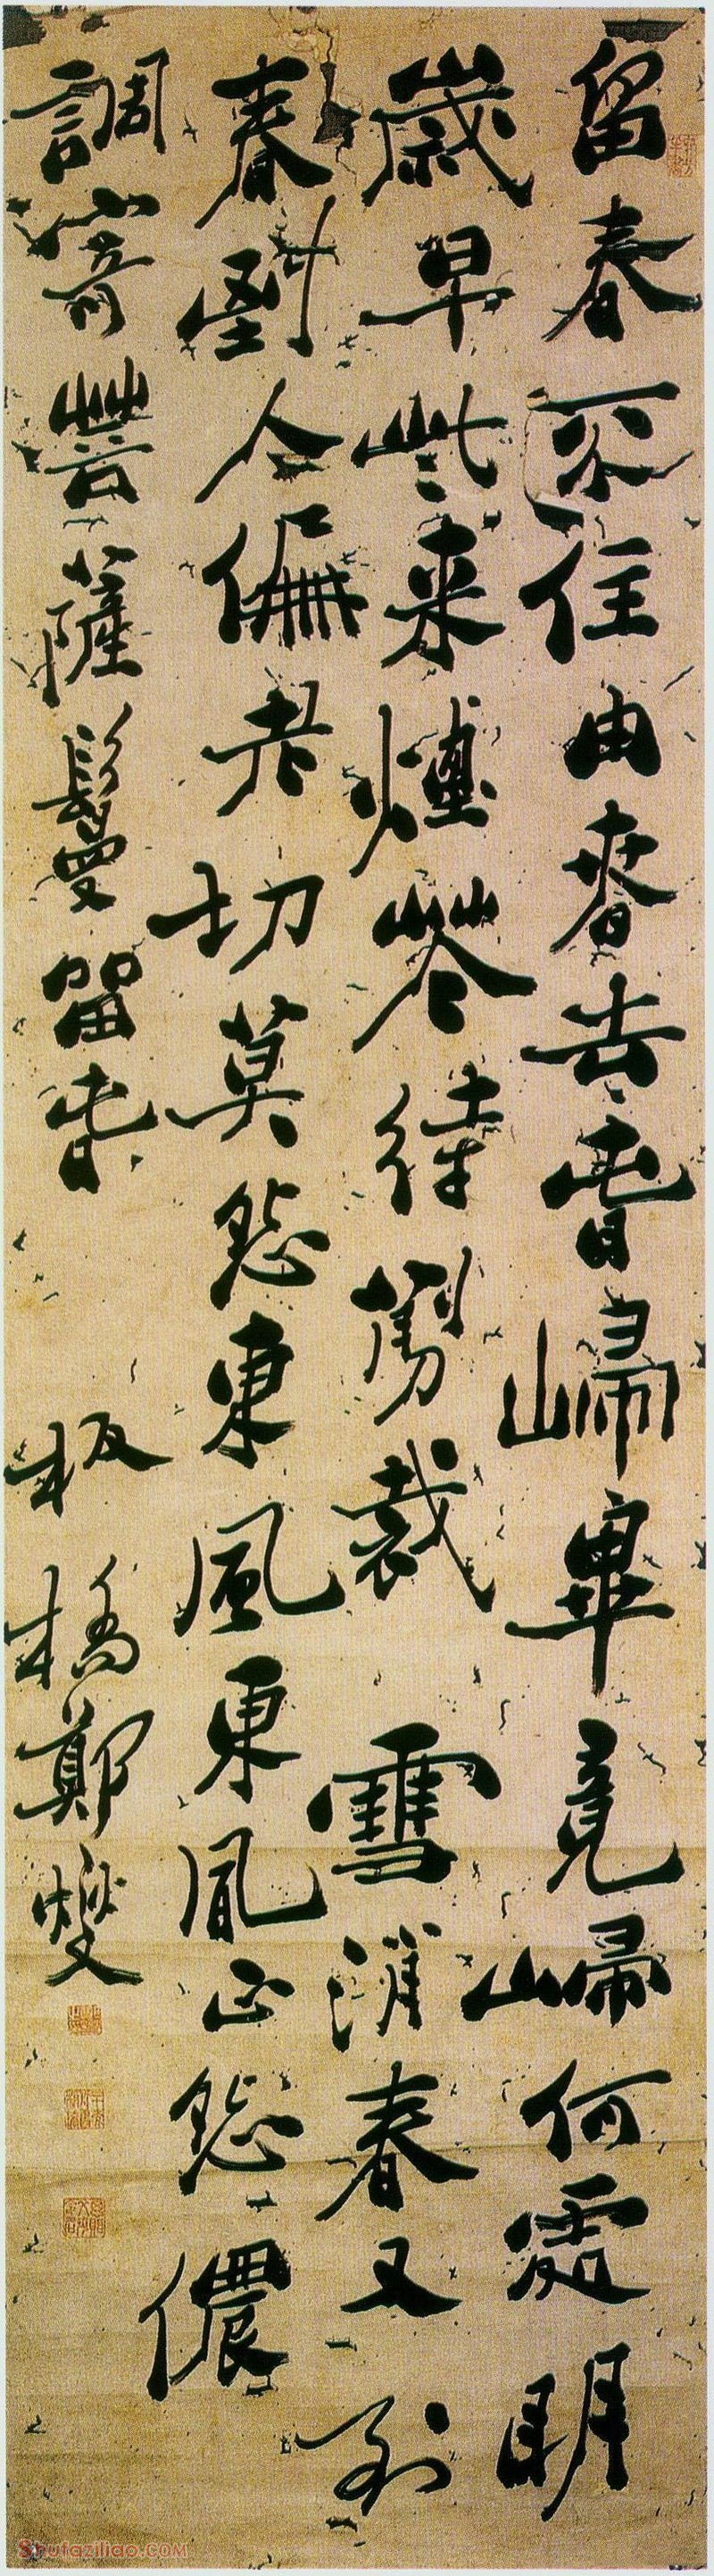 留春不住由春去春歸畢竟歸何處明
歲早些來煙花待剪裁雪消春又到
春到人偏老切莫怨東風東風正怨儂
調寄菩薩鬘留春 板橋鄭燮
Shufaziliao.com